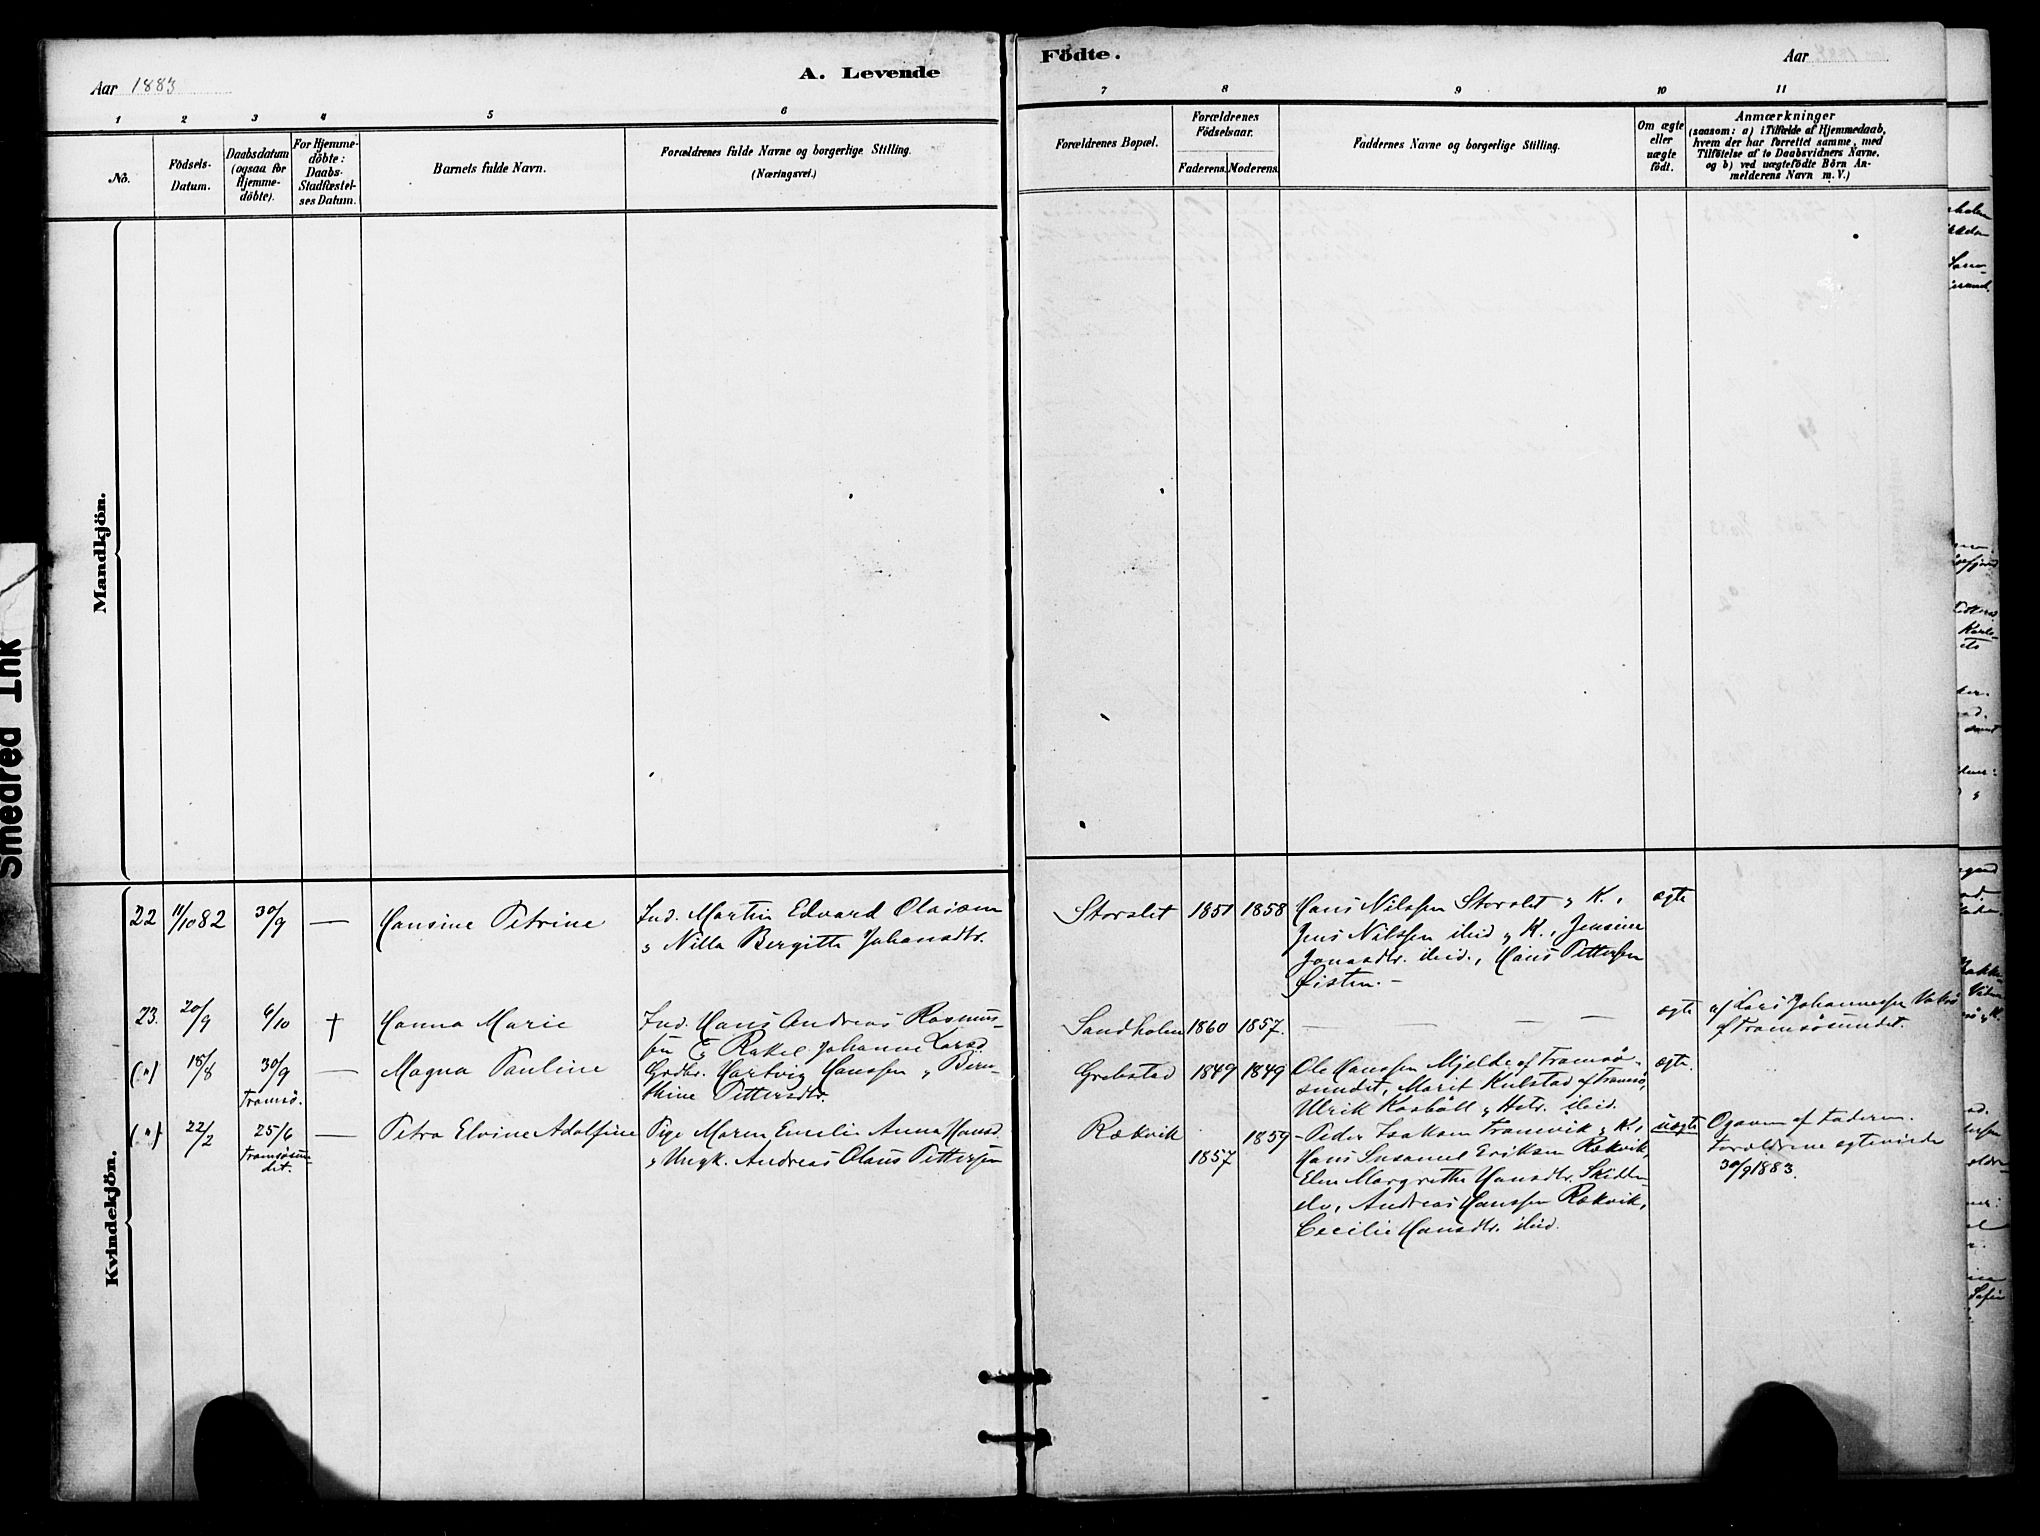 Aar 1883
A. Levende
Födte.
Aar
1
2
3
4
5
6
7
8
9
10
11
No.
Födsels-
Datum.
Daabsdatum
(ogsaa for
Hjemme-
döbte).
For Hjemme-
döbte:
Daabs-
Stadfæstel-
ses Datum.
Barnets fulde Navn.
Forældrenes fulde Navne og borgerlige Stilling.
(Næringsvei.)
Forældrenes Bopæl.
Forældrenes
Födselsaar.
Faderens. Moderens.
Faddernes Navne og borgerlige Stilling.
Om ægte
eller
uægte
födt.
Anmærkninger
(saasom: a) i Tilfælde af Hjemmedaab,
hvem der har forrettet samme, med
Tilföielse af to Daabsvidners Navne,
og b) ved uægtefödte Börn An-
melderens Navn m. V.)
Mandkjön.
Kvindekjön.
Smedred Ink
22 11/10 82 30/9 — Hansine Petrine
Ind. Martin Edvard Olaisen
og Nilla Bergitte Johansdtr.
Storslet 1851 1858
Hans Nilssen Storslet og K.,
Jens Nilssen ibid og K., Jensine
Jonasdtr. ibid., Hans Pettersen
Östen. —
ægte
23. 20/9 6/10 † Hanna Marie
Ind. Hans Andreas Rasmus-
sen og Rakel Johanne Larsd
Sandholm 1860 1857. — — — —
ægte
af Lars Johannessen
af Tromsösundet.
(") 18/8 30/9 — Magna Pauline
Tromsö.
Grdbr. Hartvig Hanssen og Bern-
thine Pettersdtr.
Grebstad 1849 1849
Ole Hanssen Mjelde af Tromsö-
sundet, Marit Kulstad af Tromsö,
Ulrik Kasböll og Hstr. ibid.
ægte.
(") 22/2 25/6 — Petra Elvine Adolfine
Tromsösun-
det.
Pige Maren Emelie Anna Hansd
og Ungk. Andreas Olaus Pettersen
Rækvik 1857 1859
Peder Isaksen Tromvik og K.,
Hans Susamel Eriksen Rækvik,
Elen Margrethe Hansdtr. Skitten-
elv, Andreas Hanssen Rækvik,
Cecilie Hansdtr. ibid.
uægte
Opgaven af Faderen.
Forældrene ægteviede
30/9 1883.